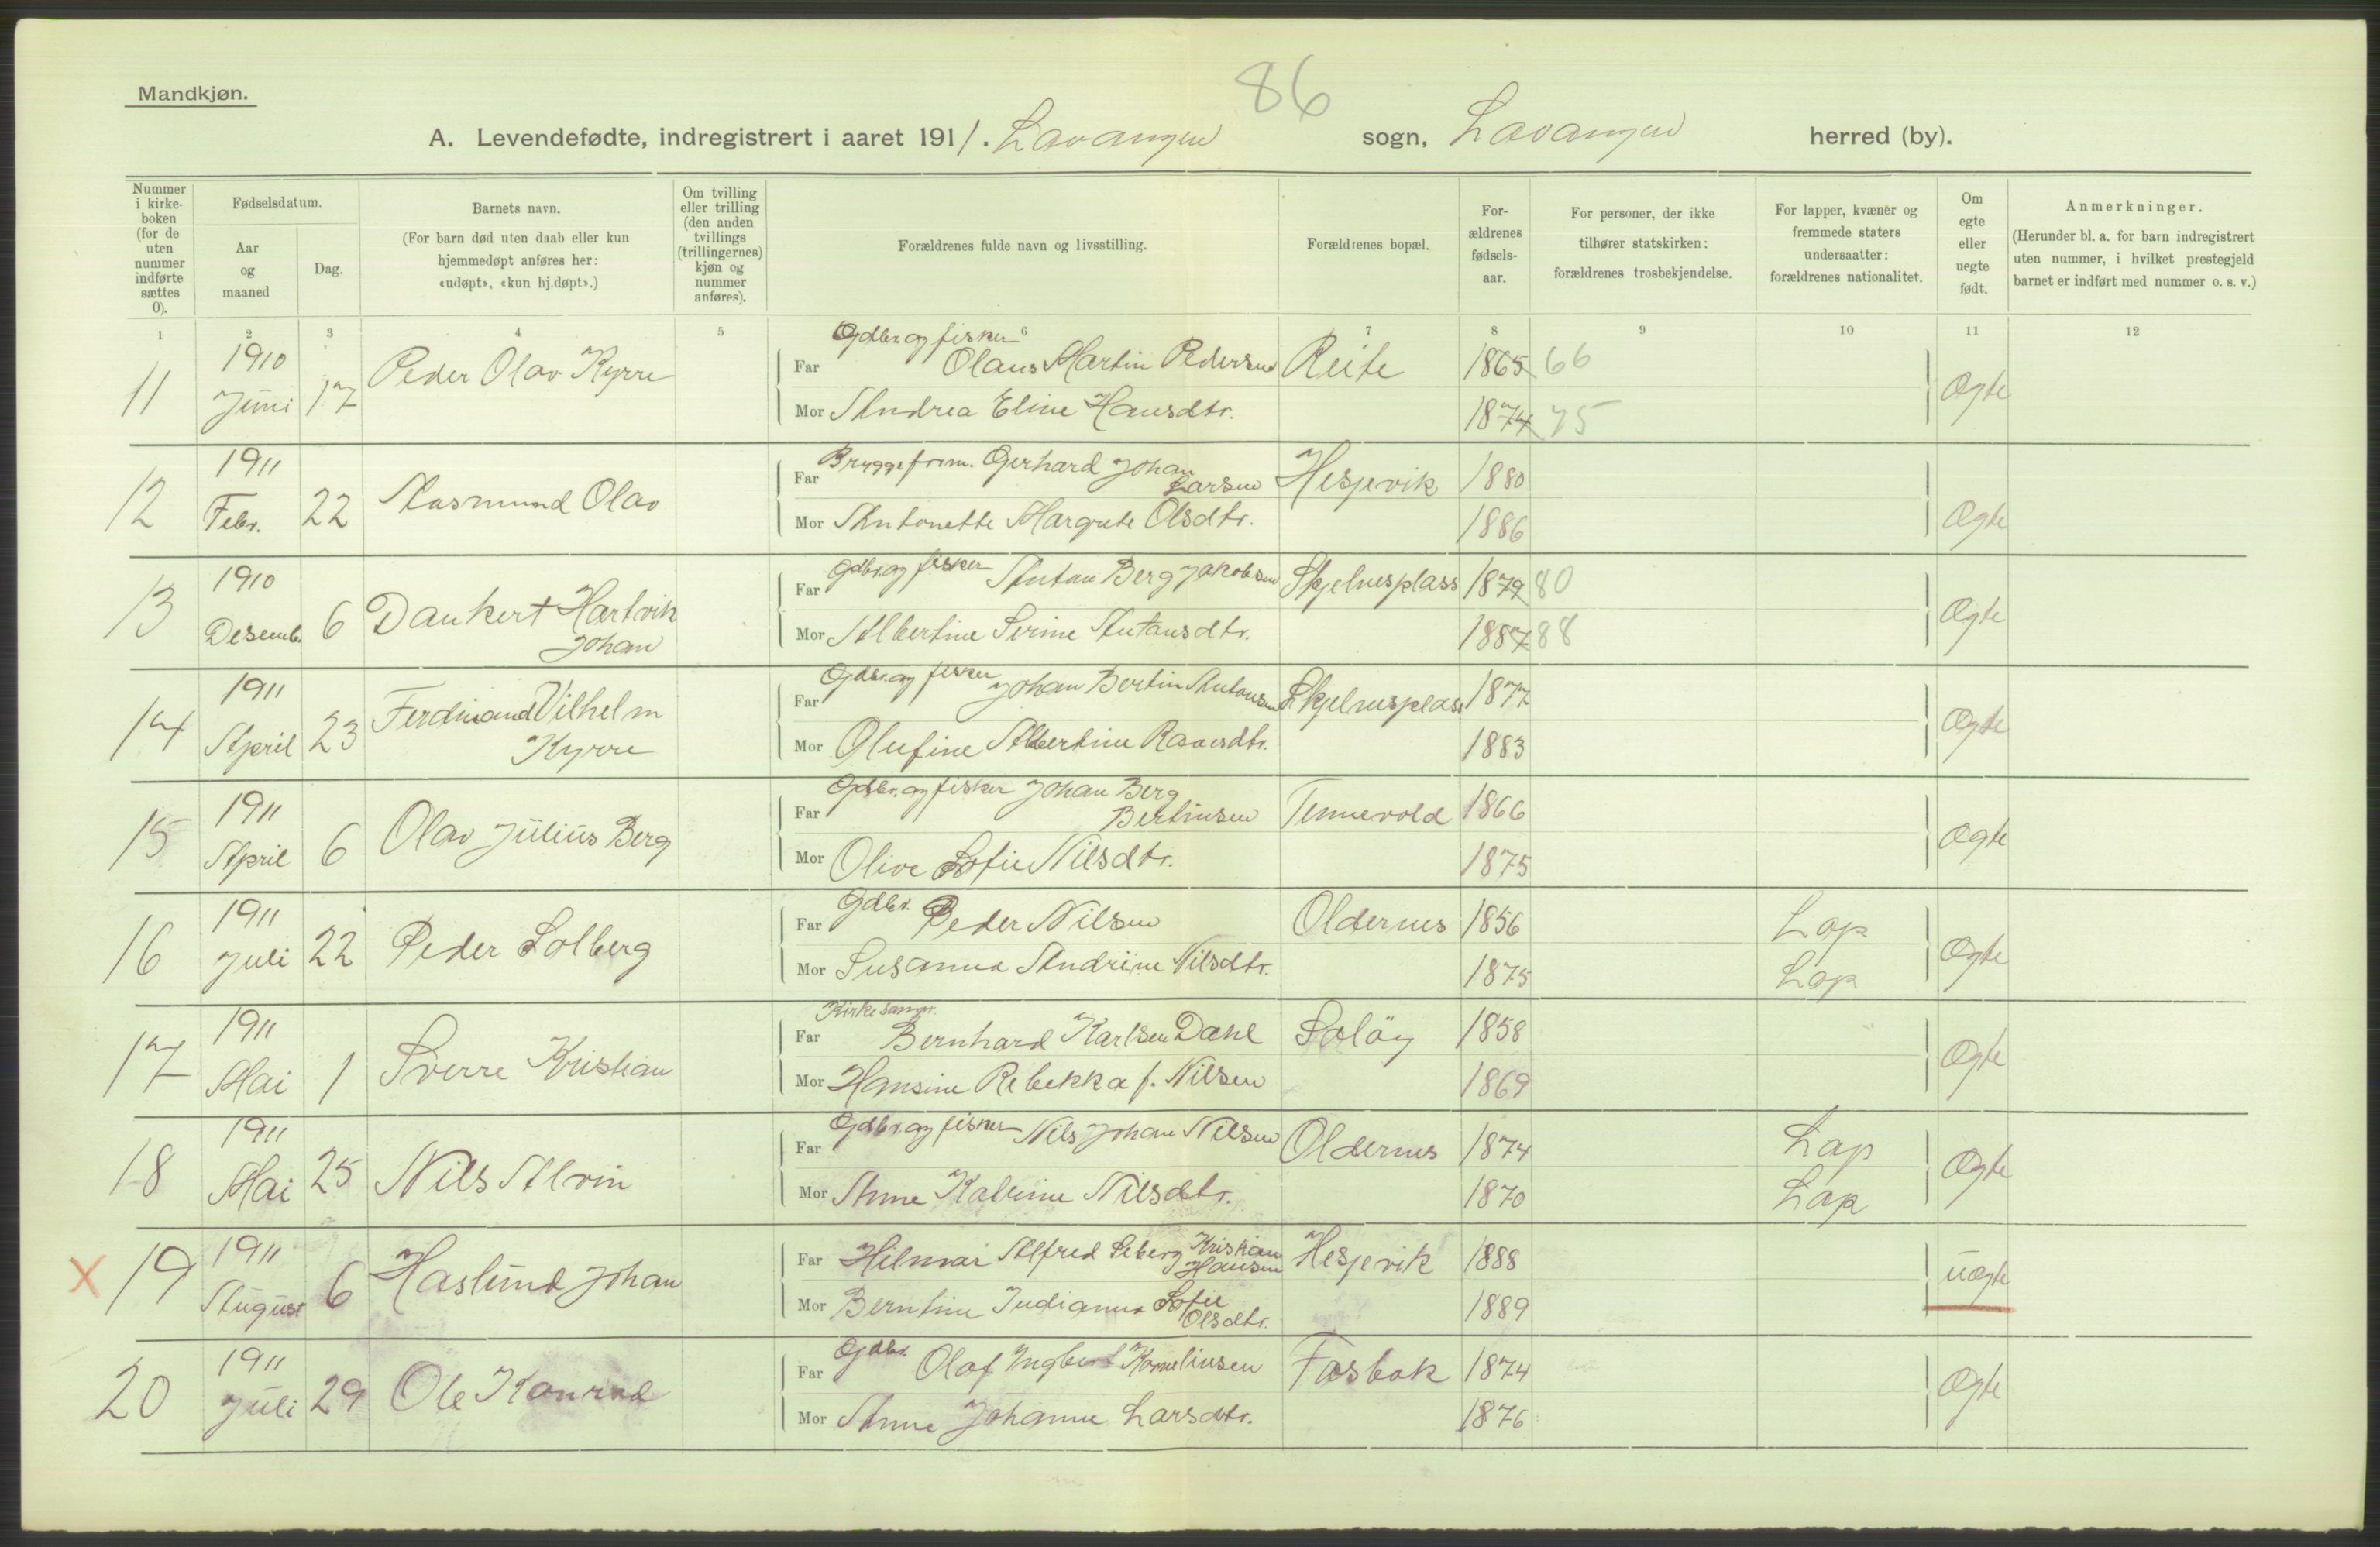 86
Mandkjøn.
A. Levendefødte, indregistrert i aaret 1911. Lavangen sogn, Lavangen herred (by).
Nummer i kirke-boken (for de uten nummer indførte sættes 0).
Fødselsdatum.
Aar og maaned
Dag.
Barnets navn.
(For barn død uten daab eller kun hjemmedøpt anføres her: «udøpt», «kun hj.døpt».)
Om tvilling eller trilling (den anden tvillings (trillingernes) kjøn og nummer anføres).
Forældrenes fulde navn og livsstilling.
Forældrenes bopæl.
For-ældrenes fødsels-aar.
For personer, der ikke tilhører statskirken: forældrenes trosbekjendelse.
For lapper, kvæner og fremmede staters undersaatter: forældrenes nationalitet.
Om egte eller uegte født.
Anmerkninger.
(Herunder bl. a. for barn indregistrert uten nummer, i hvilket prestegjeld barnet er indført med nummer o. s. v.)
1 2 3 4 5 6 7 8 9 10 11 12
11 1910 Juni 17 Peder Olav Kyrre
Far Gdbr. og fisker Olaus Martin Pedersen Reite 1865 66
Mor Andrea Eline Hansdtr. 1874 75 Ægte
12 1911 Febr. 22 Aasmund Olav
Far Bryggeform. Gerhard Johan Larsen Hesjevik 1880
Mor Antonette Margrete Olsdtr. 1886 Ægte
13 1910 Desemb. 6 Dankert Hartvik Johan
Far Gdbr. og fisker Anton Berg Jakobsen Skjelnesplass 1879 80
Mor Albertine Serine Antonsdtr. 1887 88 Ægte
14 1911 April 23 Ferdinand Vilhelm Kyrre
Far Gdbr. og fisker Johan Bertin Antonsen Skjelnesplass 1877
Mor Olufine Albertine 1883 Ægte
15 1911 April 6 Olav Julius Berg
Far Gdbr. og fisker Johan Berg Bertinsen Tennevold 1866
Mor Olive Sofie Nilsdtr. 1875 Ægte
16 1911 Juli 22 Peder Solberg
Far Gdbr. Peder Nilsen Oldernes 1856 Lap
Mor Susanna Andrine Nilsdtr. 1875 Lap Ægte
17 1911 Mai 1 Sverre Kristian
Far Kirkesanger Bernhard Karlsen Dahl Soløy 1858
Mor Hansine Rebekka f. Nilsen 1869 Ægte
18 1911 Mai 25 Nils Alvin
Far Gdbr. og fisker Nils Johan Nilsen Oldernes 1874 Lap
Mor Anne Katrine Nilsdtr. 1870 Lap Ægte
x 19 1911 August 6 Haslund Johan
Far Hilmar Alfred Seberg Kristian Hansen Hesjevik 1888
Mor Berntine Indianna Sofie Olsdtr. 1889 uægte
20 1911 Juli 29 Ole Konrad
Far Gdbr. Olaf Ingbert Korneliusen Fosbak 1874
Mor Anne Johanne Larsdtr. 1876 Ægte